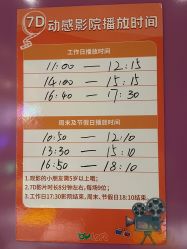 7D动感影院播放时间
工作日播放时间
11:00 — 12:15
14:00 — 15:15
16:40 — 17:30
周末及节假日播放时间
10:50 — 12:10
13:30 — 15:10
16:50 — 18:10
1.观影的小朋友需5岁以上哦;
2.7D影片时长8分钟左右,每场9位;
3.工作日17:30影院结束,周末、节假日18:10结束